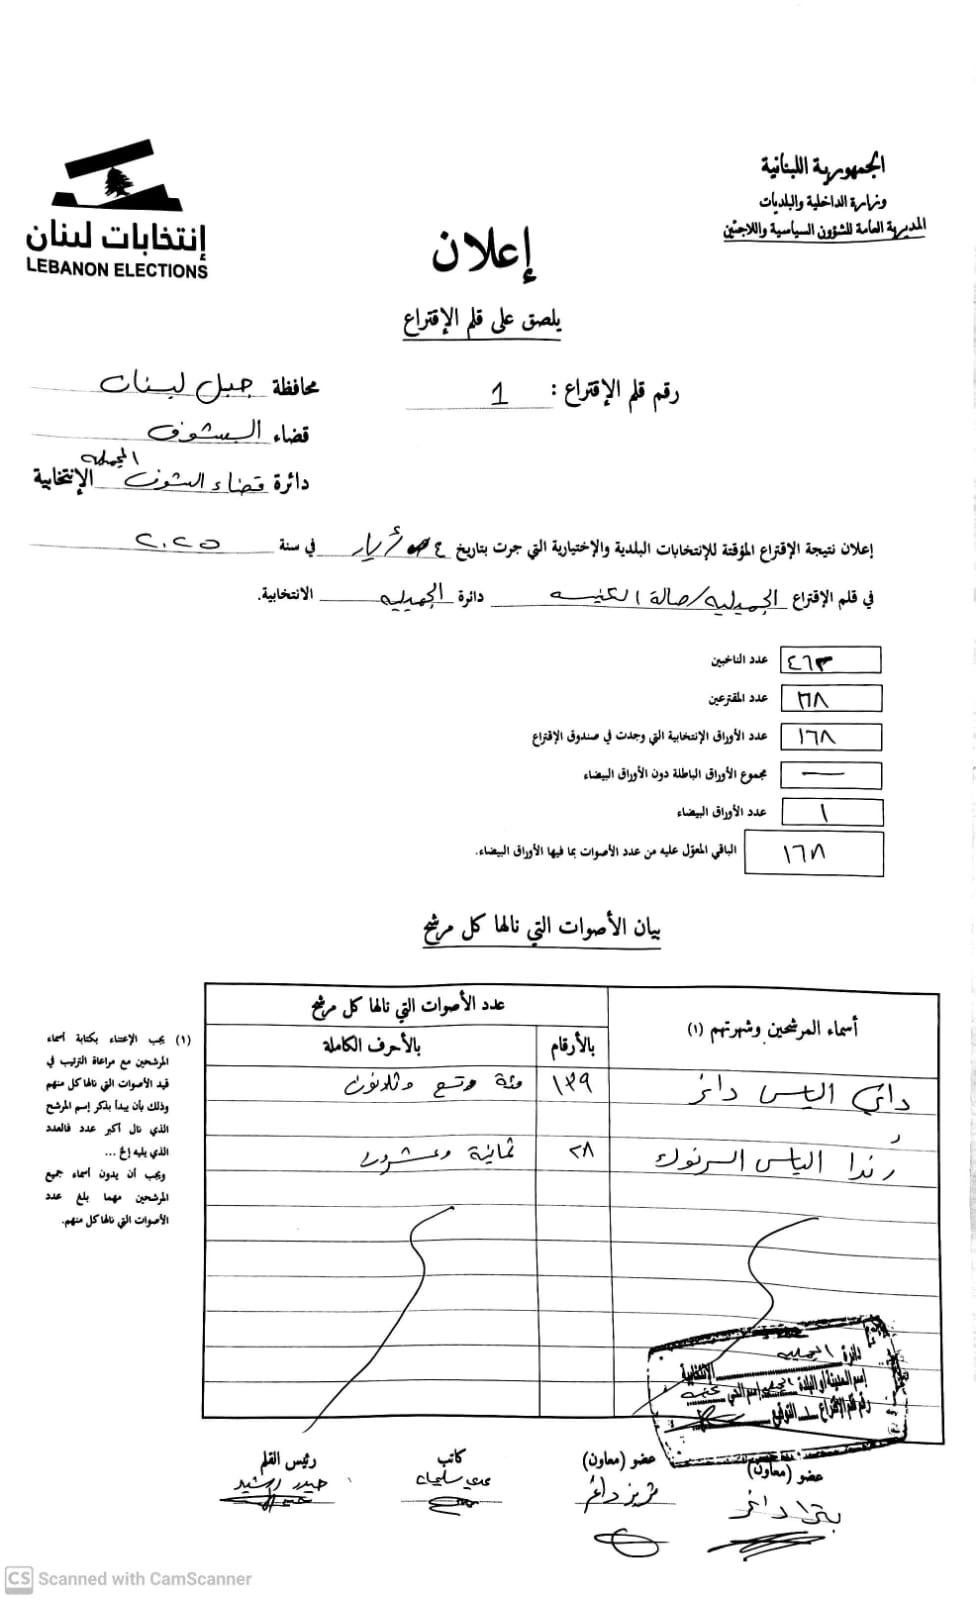 الجمهورية اللبنانية
وزارة الداخلية والبلديات
المديرية العامة للشؤون السياسية واللاجئين
إنتخابات لبنان
LEBANON ELECTIONS
إعلان
يلصق على قلم الإقتراع
رقم قلم الإقتراع : 1
محافظة جبل لبنان
قضاء الشوف
دائرة قضاء الشوف الإنتخابية
إعلان نتيجة الإقتراع المؤقتة للإنتخابات البلدية والإختيارية التي جرت بتاريخ ٤ أيار في سنة ٢٠٢٥
في قلم الإقتراع الجميلية/صالة الكنيسة دائرة الجميلية الانتخابية.
٤٦٣ عدد الناخبين
١٦٨ عدد المقترعين
١٦٨ عدد الأوراق الإنتخابية التي وجدت في صندوق الإقتراع
— مجموع الأوراق الباطلة دون الأوراق البيضاء
١ عدد الأوراق البيضاء
١٦٨ الباقي المعوّل عليه من عدد الأصوات بما فيها الأوراق البيضاء.
بيان الأصوات التي نالها كل مرشح
أسماء المرشحين وشهرتهم (١)
عدد الأصوات التي نالها كل مرشح
بالأرقام بالأحرف الكاملة
داني الياس داغر ١٣٩ مئة وتسع وثلاثون
رندا الياس السرنوك ٢٨ ثمانية وعشرون
(١) يجب الإعتناء بكتابة أسماء
المرشحين مع مراعاة الترتيب في
قيد الأصوات التي نالها كل منهم
وذلك بأن يبدأ بذكر إسم المرشح
الذي نال أكبر عدد فالعدد
الذي يليه إلخ ...
ويجب أن يدون أسماء جميع
المرشحين مهما بلغ عدد
الأصوات التي نالها كل منهم.
دائرة الإنتخابية
اسم المدينة أو البلدة اسم الحي
رقم قلم الإقتراع 1 التوقيع
عضو (معاون) عضو (معاون) كاتب رئيس القلم
داغر داغر سليمان حيدر
CS Scanned with CamScanner